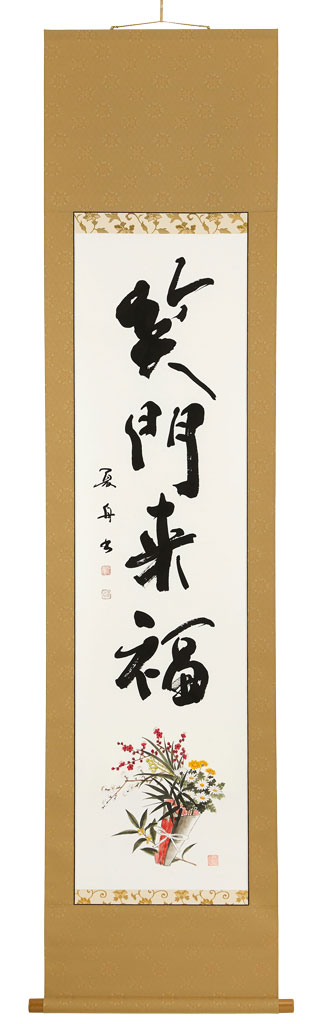 笑門来福
夏舟書